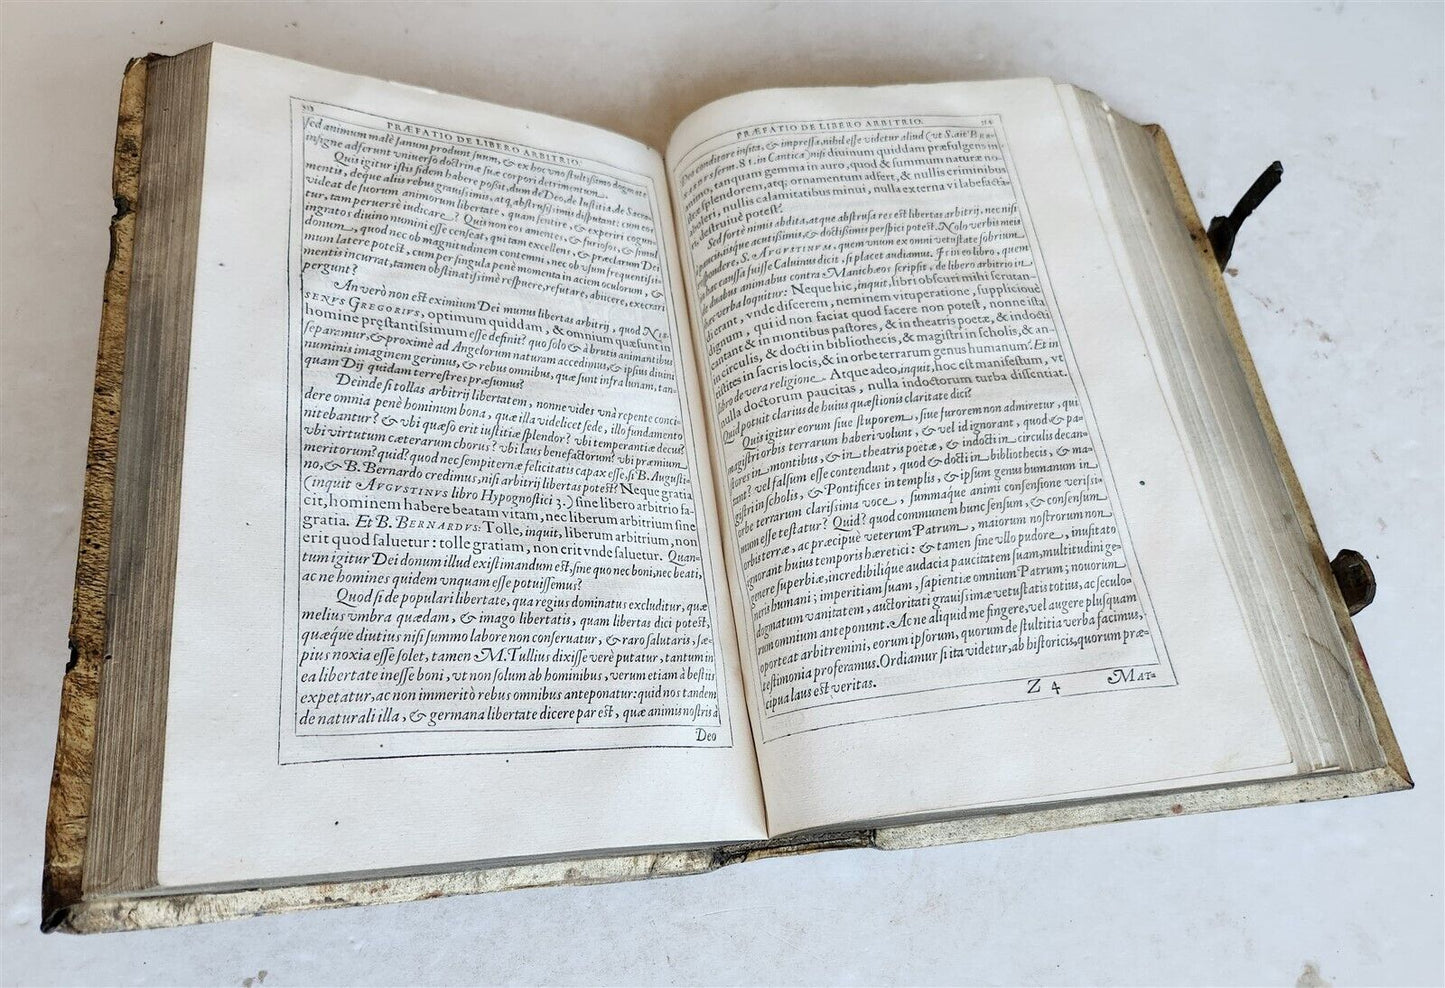 PRÆFATIO DE LIBERO ARBITRIO.
sed animum malè sanum produnt suum, & ex hoc vno stultissimo dogmate
insigne adferunt vniverso doctrinæ suæ corpori detrimentum.
Quis igitur istis fidem habere possit, dum de Deo, de Iustitia, de Sacra-
mentis, deque aliis rebus gravissimis, atq; abstrusissimis disputant: cum eos
videat de suorum animorum libertate, quam sentire, & experiri cogun-
tur, tam perversè iudicare? Quis non eos amentes, & furiosos, & simul
ingratos divino numini esse censeat, qui tam excellens, & præclarum Dei
donum, quod nec ob magnitudinem contemni, nec ob vsum frequentissi-
mum latere potest, cum per singula penè momenta in aciem oculorum, &
mentis incurrat, tamen obstinatissimè respuere, refutare, abiicere, execrari
pergunt?
An verò non est eximium Dei munus libertas arbitrij, quod NIS-
SENVS GREGORIVS, optimum quiddam, & omnium quæ sunt in
homine præstantissimum esse definit? quo solo & à brutis animantibus
separamur, & proximè ad Angelorum naturam accedimus, & ipsius divini
numinis imaginem gerimus, & rebus omnibus, quæ sunt infra lunam, tan-
quam Dij quidam terrestres præsumus?
Deinde si tollas arbitrij libertatem, nonne vides vnà repente conci-
dere omnia penè hominum bona, quæ illa videlicet sede, illo fundamento
nitebantur? & vbi quæso erit iustitiæ splendor? vbi temperantiæ decus?
vbi virtutum cæterarum chorus? vbi laus benefactorum? vbi præmium
meritorum? quid? quod nec sempiternæ felicitatis capax esse, si B. Augusti-
no, & B. Bernardo credimus, nisi arbitrij libertas potest? Neque gratia
(inquit AVGVSTINVS libro Hypognostici 3.) sine libero arbitrio fa-
cit, hominem habere beatam vitam, nec liberum arbitrium sine
gratia. Et B. BERNARDVS: Tolle, inquit, liberum arbitrium, non
erit quod saluetur: tolle gratiam, non erit vnde saluetur. Quan-
tum igitur Dei donum illud existimandum est, sine quo nec boni, nec beati,
ac ne homines quidem vnquam esse potuissemus?
Quod si de populari libertate, qua regius dominatus excluditur, quæ
melius vmbra quædam, & imago libertatis, quam libertas dici potest,
quæque diutius nisi summo labore non conseruatur, & raro salutaris, sæ-
pius noxia esse solet, tamen M. Tullius dixisse verè putatur, tantum in
ea libertate inesse boni, vt non solum ab hominibus, verum etiam à bestiis
expetatur, ac non immeritò rebus omnibus anteponatur: quid nos tandem
de naturali illa, & germana libertate dicere par est, quæ animis nostris à
Deo
PRÆFATIO DE LIBERO ARBITRIO.
Deo conditore insita, & impressa, nihil esse videtur aliud (vt S. ait BER-
NARDVS serm. 81. in Cantica) nisi divinum quiddam præfulgens in
animo, tanquam gemma in auro, quod & summum naturæ no-
stræ splendorem, atq; ornamentum adfert, & nullis criminibus
aboleri, nullis calamitatibus minui, nulla externa vi labefacta-
ri, destruive potest?
Sed fortè nimis abdita, atque abstrusa res est libertas arbitrij, nec nisi
à paucis, iisque acutissimis, & doctissimis perspici potest. Nolo verbis meis
respondere, S. AVGVSTINVM, quem vnum ex omni vetustate sobrium
in hac caussa fuisse Caluinus dicit, si placet audiamus. Is in eo libro, quem
de duabus animabus contra Manichæos scripsit, de libero arbitrio in
hæc verba loquitur: Neque hic, inquit, libri obscuri mihi scrutan-
di erant, vnde discerem, neminem vituperatione, suppliciove
dignum, qui id non faciat quod facere non potest, nonne ista
cantant & in montibus pastores, & in theatris poetæ, & indocti
in circulis, & docti in bibliothecis, & magistri in scholis, & an-
tistites in sacris locis, & in orbe terrarum genus humanum? Et in
libro de vera religione. Atque adeo, inquit, hoc est manifestum, vt
nulla doctorum paucitas, nulla indoctorum turba dissentiat.
Quid potuit clarius de huius quæstionis claritate dici?
Quis igitur eorum sive stuporem, sive furorem non admiretur, qui
magistri orbis terrarum haberi volunt, & vel id ignorant, quod & pa-
stores in montibus, & in theatris poëtæ, & indocti in circulis decan-
tant? vel falsum esse contendunt, quod & docti in bibliothecis, & ma-
gistri in scholis, & Pontifices in templis, & ipsum genus humanum in
orbe terrarum clarissima voce, summáque animi consensione verissi-
mum esse testatur? Quid? quod communem hunc sensum, & consensum
orbis terræ, ac præcipuè veterum Patrum, maiorum nostrorum non
ignorant huius temporis hæretici: & tamen sine vllo pudore, inusitato
genere superbiæ, incredibilique audacia paucitatem suam, multitudini ge-
neris humani; imperitiam suam, sapientiæ omnium Patrum; nouorum
dogmatum vanitatem, auctoritati grauissimæ vetustatis totius, ac seculo-
rum omnium anteponunt. Ac ne aliquid me fingere, vel augere plusquam
oporteat arbitremini, eorum ipsorum, quorum de stultitia verba facimus,
testimonia proferamus. Ordiamur si ita videtur, ab historicis, quorum præ-
cipua laus est veritas.
Z 4 MAT-